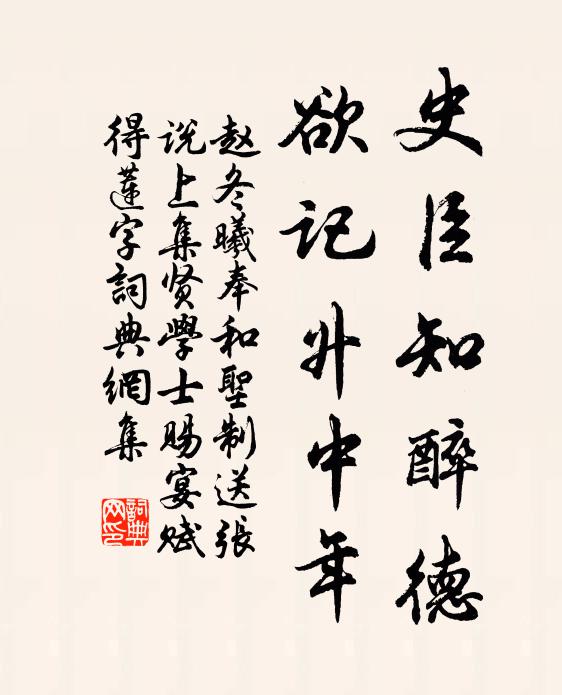 史臣知醉德
欲记升中年
赵冬曦奉和聖制送張
说上集贤學士赐宴赋
得莲字詞典網集
詞典网印